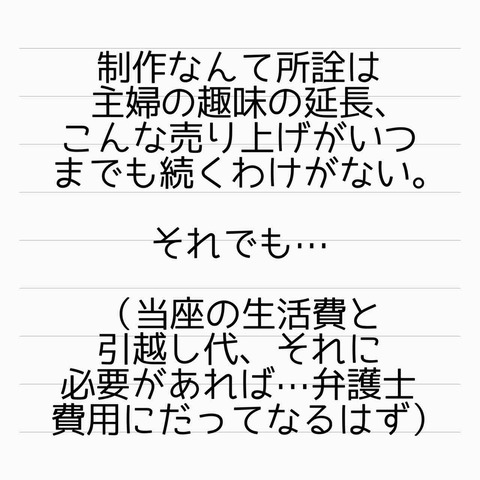 制作なんて所詮は
主婦の趣味の延長、
こんな売り上げがいつ
までも続くわけがない。
それでも…
（当座の生活費と
引越し代、それに
必要があれば…弁護士
費用にだってなるはず）